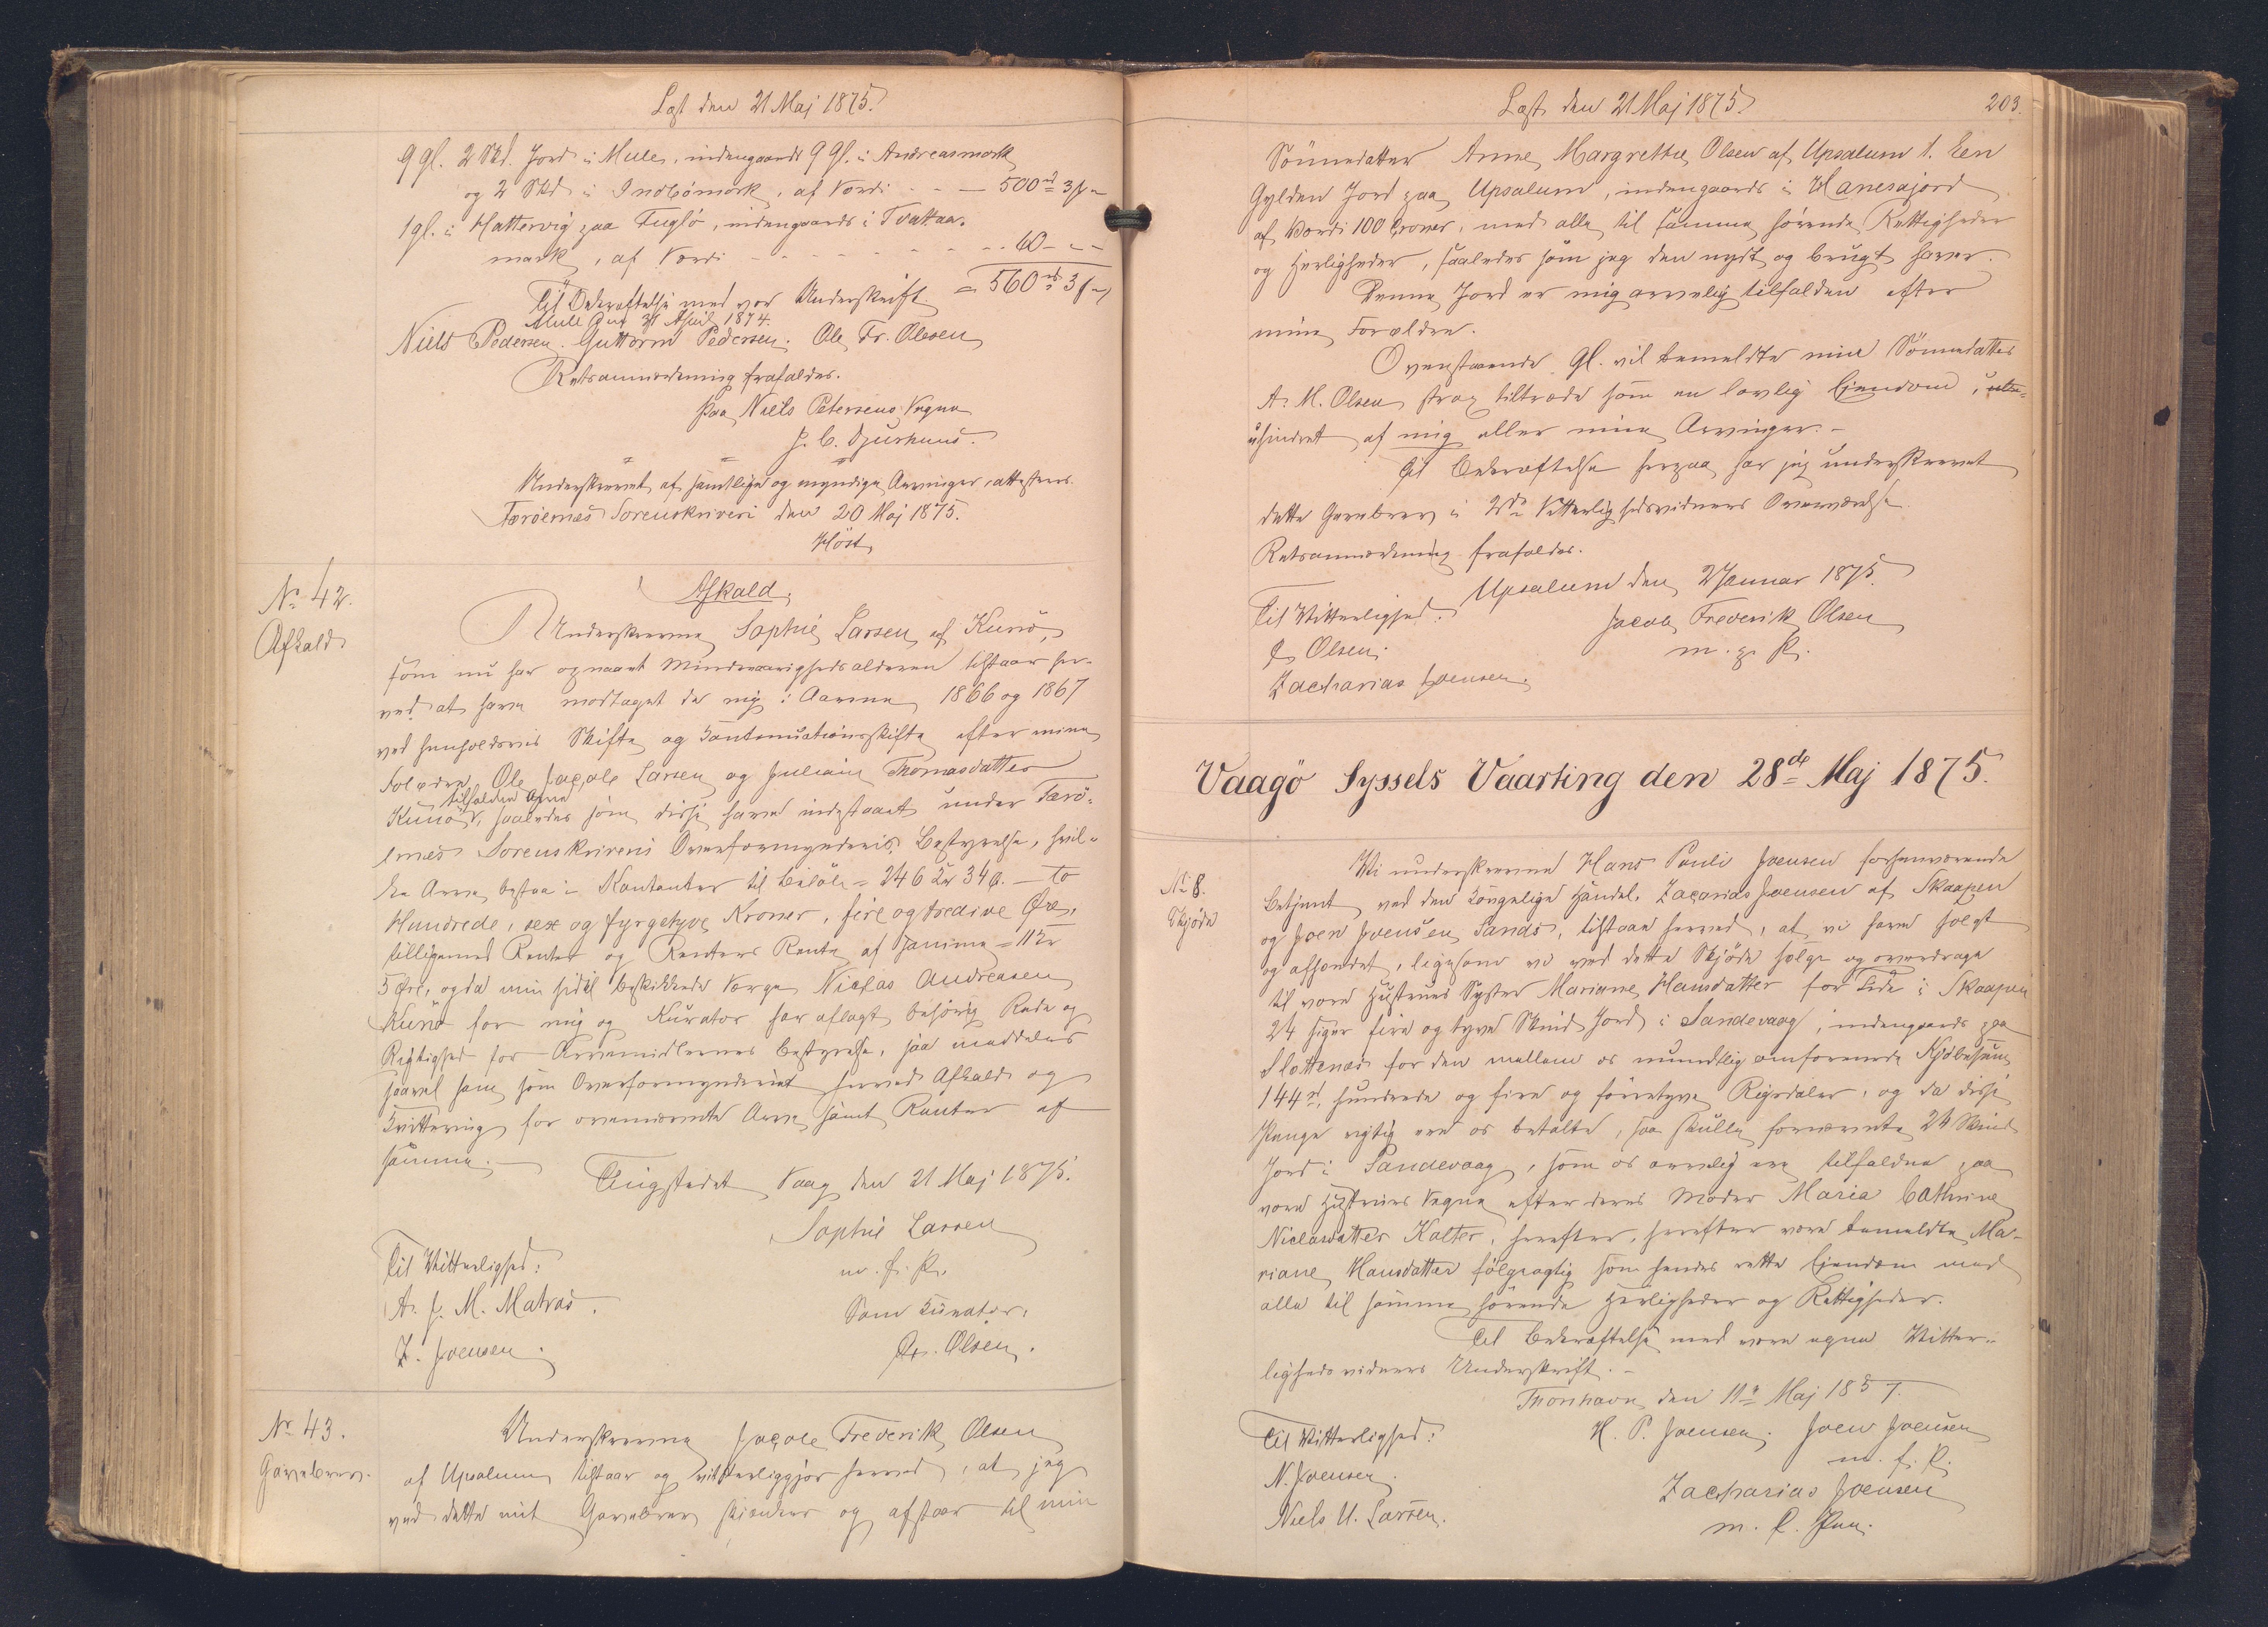 Læst den 21 Maj 1875.
9 gl. 2 Skd. Jord i Mule, indengaards 9 gl. i Andreasmørk
og 2 Skd i Indbømørk, af Værdi - - - 500 rd 3 ƒ -
1 gl. i Hattervig paa Fuglø, indengaards i Tvattaa-
mørk, af Værdi - - - - - - - - 60 - - -
Til Bekræftelse med vor Underskrift = 560 rd 3 ƒ -
Mule den April 1874.
Niels Pedersen. Guttorm Pedersen. Ole Fr. Olesen
Retsanmærkning frafaldes.
Paa Niels Petersens Vegne
J. C. Djurhuus.
Underskrevet af samtlige og myndige Arvinger, attesteres.
Færøernes Sorenskriveri den 20 Maj 1875.
Høst
No 42.
Afkald
Afkald.
Underskrevne Sophie Larsen af Kunø,
som nu har opnaaet Mindreaarighedsalderen tilstaar her-
ved at have modtaget de mig i Aarene 1866 og 1867
ved henholdsvis Skifte og Kontinuationsskifte efter mine
Forældre Ole Jacob Larsen og Juliane Thomasdatter
tilfaldne Arve
Kunø, saaledes som disse have indestaaet under Færø-
ernes Sorenskriveris Overformynderis Bestyrelse, hvil-
ke Arve bestaa i Kontanter til Beløb = 246 Kr 34 Ø. - to
Hundrede, sex og fyrgetyve Kroner, fire og tredive Øre,
tilligemed Renter og Renters Rente af samme = 11 Kr
5 Øre, og da min hidtil beskikkede Værge Niclas Andreasen
Kunø for mig og Kurator har aflagt behørig Rede og
Rigtighed for Arvemidlernes Bestyrelse, saa meddeles
saavel ham som Overformynderiet herved Afkald og
Kvittering for ovennævnte Arv samt Renter af
samme. -
Thingstedet Vaag den 21 Maj 1875.
Sophie Larsen
m. f. P.
Til Vitterlighed:
A. J. M. Matras.
Som Kurator:
Z. Joensen.
Olsen.
No 43.
Gavebrev.
Underskrevne Jacob Frederik Olsen
af Upsalum tilstaar og vitterliggjør herved, at jeg
ved dette mit Gavebrev skjænker og afstaar til min
Læst den 21 Maj 1875. 203.
Sønnedatter Anne Margrethe Olsen af Upsalum 1. Een
Gylden Jord paa Upsalum, indengaards i Hanesajord
af Værdi 100 Kroner, med alle til samme hørende Rettigheder
og Herligheder, saaledes som jeg den nydt og brugt haver.
Denne Jord er mig arvelig tilfalden efter
mine Forældre.
Ovenstaaende gl. vil bemeldte min Sønnedatter
A. M. Olsen strax tiltræde som en lovlig Ejendom,
uhindret af mig eller mine Arvinger. -
Til Bekræftelse herpaa har jeg underskrevet
dette Gavebrev i 2de Vitterlighedsvidners Overværelse.
Retsanmærkning frafaldes.
Upsalum den 2 Januar 1875.
Til Vitterlighed:
Jacob Frederik Olsen
Olsen.
m. p. P.
Zacharias Joensen.
Vaagö Syssels Vaarting den 28de Maj 1875.
No 8.
Skjøde
Vi underskrevne Hans Pauli Joensen forhenværende
Betjent ved den Kongelige Handel, Zacarias Joensen af Skaapen
og Joen Joensen Sands, tilstaae herved, at vi have solgt
og afhændet, ligesom vi ved dette Skjøde sælge og overdrage
til vore Hustruers Syster Mariane Hansdatter for Tide i Skaapen
24 siger fire og tyve Skind Jord i Sandevaag, indengaards paa
Slottenæs for den mellem os mundtlig omforenede Kjøbesum
144 rd, hundrede og fire og førretyve Rigsdaler, og da disse
Penge rigtig ere os betalte, saa skulle fornævnte 24 Skind
Jord i Sandevaag, som os arvelig ere tilfaldne paa
vore Hustruers Vegne efter deres Moder Maria Cathrine
Niclasdatter Kalter, herefter, herefter være bemeldte Ma-
riane Hansdatter følgagtig som hendes rette Ejendom med
alle til samme hørende Herligheder og Rettigheder.
Til Bekræftelse med vore egne Vitter-
lighedsvidners Underskrift. -
Thorshavn den 11te Maj 1857.
Til Vitterlighed:
H. P. Joensen. Joen Joensen
m. f. P.
N. Joensen.
Zacharias Joensen
Niels U. Larsen.
m. P. Pen.